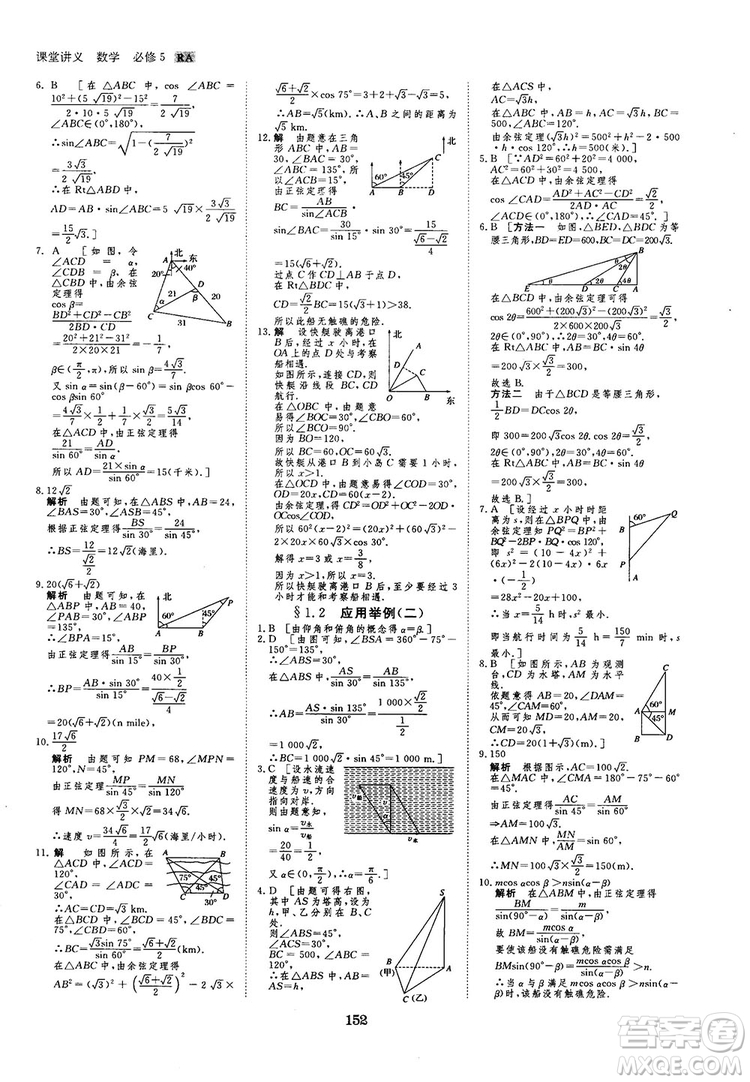 课堂讲义 数学 必修5 RA
6. B [在△ABC中，cos ∠ABC=
10²+(5√19)²-15²/2·10·5√19=7/2√19，∠ABC∈
(0°,180°)，
∴sin∠ABC=√1-(7/2√19)²
=3√3/2√19
∴在Rt△ABD中，
AD=AB·sin∠ABC=5√19×3√3/2√19=
15/2√3.]
7. A [如图，令
∠ACD=α，
∠CDB=β，在
△CBD中，由余
弦定理得
cos β=
BD²+CD²-CB²/2BD·CD
=20²+21²-31²/2×20×21=-1/7，
β∈(π/2,π)，∴sin β=4√3/7.
又sin α=sin(β-60°)=sin βcos 60°-
cos βsin 60°
=4√3/7×1/2+1/7×√3/2=5√3/14，
在△ACD中，由正弦定理得
21/sin 60°=AD/sin α，
所以AD=21×sin α/sin 60°=15(千米).]
8. 12√2
解析 由题可知，在△ABS中，AB=24，
∠BAS=30°，∠ASB=45°，
根据正弦定理BS/sin 30°=AB/sin 45°，
∴BS=12/√2/2=12√2(海里).
9. 20(√6+√2)
解析 由题可知，在
△ABP中，AB=40，
∠PAB=30°，∠ABP=
135°，
∴∠BPA=15°，
由正弦定理得AB/sin 15°=BP/sin 30°，
∴BP=AB·sin 30°/sin 15°=40×1/2/√6-√2/4
=20(√6+√2)(n mile).
10. 17√6/2
解析 由题可知PM=68，∠MPN=
120°，N=45°，
由正弦定理MP/sin 45°=MN/sin 120°
得MN=68×√3/2×√2=34√6，
∴速度v=34√6/4=17√6/2(海里/小时).
11. 解 如图所示，在
△ACD中，∠ADC=
120°，∠CAD=
∠ACD=30°，
∴AC=CD=√3(km).
在△BDC中，∠CBD=180°-45°-75°=
60°.
∴BC=√3sin 75°/sin 60°=√6+√2/2.
在△ABC中，由余弦定理，可得
AB²=AC²+BC²-2AC·BC·cos∠BCA，
∴AB²=(√3)²+(√6+√2/2)²-2√3·
√6+√2/2×cos 75°=5.
∴AB=√5(km).∴A、B之间的距离为
√5 km.
12. 解 由题意在三角
形ABC中，AB=
30，∠BAC=30°，
∠ABC=135°，所以
∠ACB=15°，
由正弦定理
BC=AB/sin∠ACB
·sin∠BAC=30/sin 15°·sin 30°=
15/√6-√2/4
=15(√6+√2).
过点C作CD⊥AB于点D，
在Rt△BDC中，
CD=√2/2BC=15(√3+1)>38.
所以此船无触礁的危险.
13. 解 设快艇驶离港口
B后，经过x小时，在
OA上的点D处与考察
船相遇.
如图所示，连接CD，则
快艇沿线段BC、CD
航行.
在△OBC中，∠BOC=30°，∠CBO=
60°，∴∠BCO=90°.
又BO=120，∴BC=60，OC=60√3.
故快艇从港口B到小岛C需要1小时，
所以x>1.
在△OCD中，由题意易得∠COD=30°，
OD=20x，CD=60(x-2).
由余弦定理得CD²=OD²+OC²-2OD·
OCcos∠COD，
∴60²(x-2)²=(20x)²+(60√3)²-2×
20x×60√3×cos 30°.
解得x=3或x=3/8.
∵x>1，∴x=3.
所以快艇驶离港口B后，至少要经过3
小时才能和考察船相遇.
§1.2 应用举例(二)
1. B [由仰角和俯角的概念得α=β.]
2. D [由题图知，∠BSA=360°-75°-
150°=135°，
∴∠ABS=30°，
∴AS/sin 30°=AB/sin 135°，
∴AB=1 000·√2/2/1/2
=1 000√2，
∴BC=1 000√2·sin 45°=1 000 m.]
3. C [设水流速
度与船速的合
速度为v，方向
指向对岸.
则由题意知，
sin α=v水/v船=
20/40=1/2.
又α∈(0,π/2)，∴α=π/6.]
4. A [由题可得右图，
其中AS为塔高，设为
h，甲、乙分别在B、
C处.
则∠ABS=45°，
∠ACS=30°，
BC=500，∠ABC=
120°，
∴在△ABS中，
AB=AS=h，
在△ACS中，
AC=√3h，
在△ABC中，AB=h，AC=√3h，BC=
500，∠ABC=120°.
由余弦定理(√3h)²=500²+h²-2·500
·h·cos 120°，
∴h=500(米).]
5. B [∵AD²=60²+20²=4 000，
AC²=60²+30²=4 500.
在△CAD中，由余弦定理得
cos∠CAD=AD²+AC²-CD²/2AD·AC=√2/2，
∴∠CAD=45°.]
6. B [方法一 由题意知，△BCD为等
腰三角形，BD=DC=600，
在△DAC中，由余弦定理得
cos 2θ=600²+(200√3)²-(200√3)²/2×600×200√3=√3/2，
∵0°<2θ<90°，∴2θ=30°，θ=15°.
在Rt△ACE中，AE=AC·sin 4θ=
200√3×√3/2=300，
故选B.
方法二 由于△BCD是等腰三角形，
1/2BD=DCcos 2θ，
即300=200√3cos 2θ，∴cos 2θ=√3/2，
∵0°<2θ<90°，∴2θ=30°，θ=15°.
在Rt△ACE中，AE=AC·sin 4θ=
200√3×√3/2=300，
故选B.]
7. A [如图所示，设行驶x小时时
距离为s，则在△BPQ中，由
余弦定理知PQ²=BP²+
BQ²-2BP·BQ·cos 120°，
即s²=(10-4x)²+(6x)²-
2(10-4x)×6x×(-1/2)
=28x²-20x+100.
∴当x=5/14时，s²最小，
即当航行时间为5/14 h=
150/7 min时，s最小.]
8. B [如图，AB为观测
台，CD为水塔，AM为水平
线.
依题意得AB=20，∠DAM=
45°，∠CAM=60°，
从而可知MD=20，AM=
20，CM=20√3，
∴CD=20(1+√3)(m).]
9. 150
解析 根据图示，AC=100√2.
在△MAC中，∠CMA=180°-75°-60°
=45°.
由正弦定理得AC/sin 45°=AM/sin 60°
⇒AM=100√3.
在△AMN中，MN/AM=sin 60°，
∴MN=100√3×√3/2=150.
10. mcos αcos β>nsin(α-β)
解析 在△ABM中，由正弦定理得
BM/sin(90°-α)=m/sin(α-β)，
故BM=mcos α/sin(α-β).
要使该船没有触礁危险需满足
BMsin(90°-β)=mcos αcos β/sin(α-β)>n.
∴当α与β满足mcos αcos β>nsin(α-β)
时，该船没有触礁危险.
152
答案圈